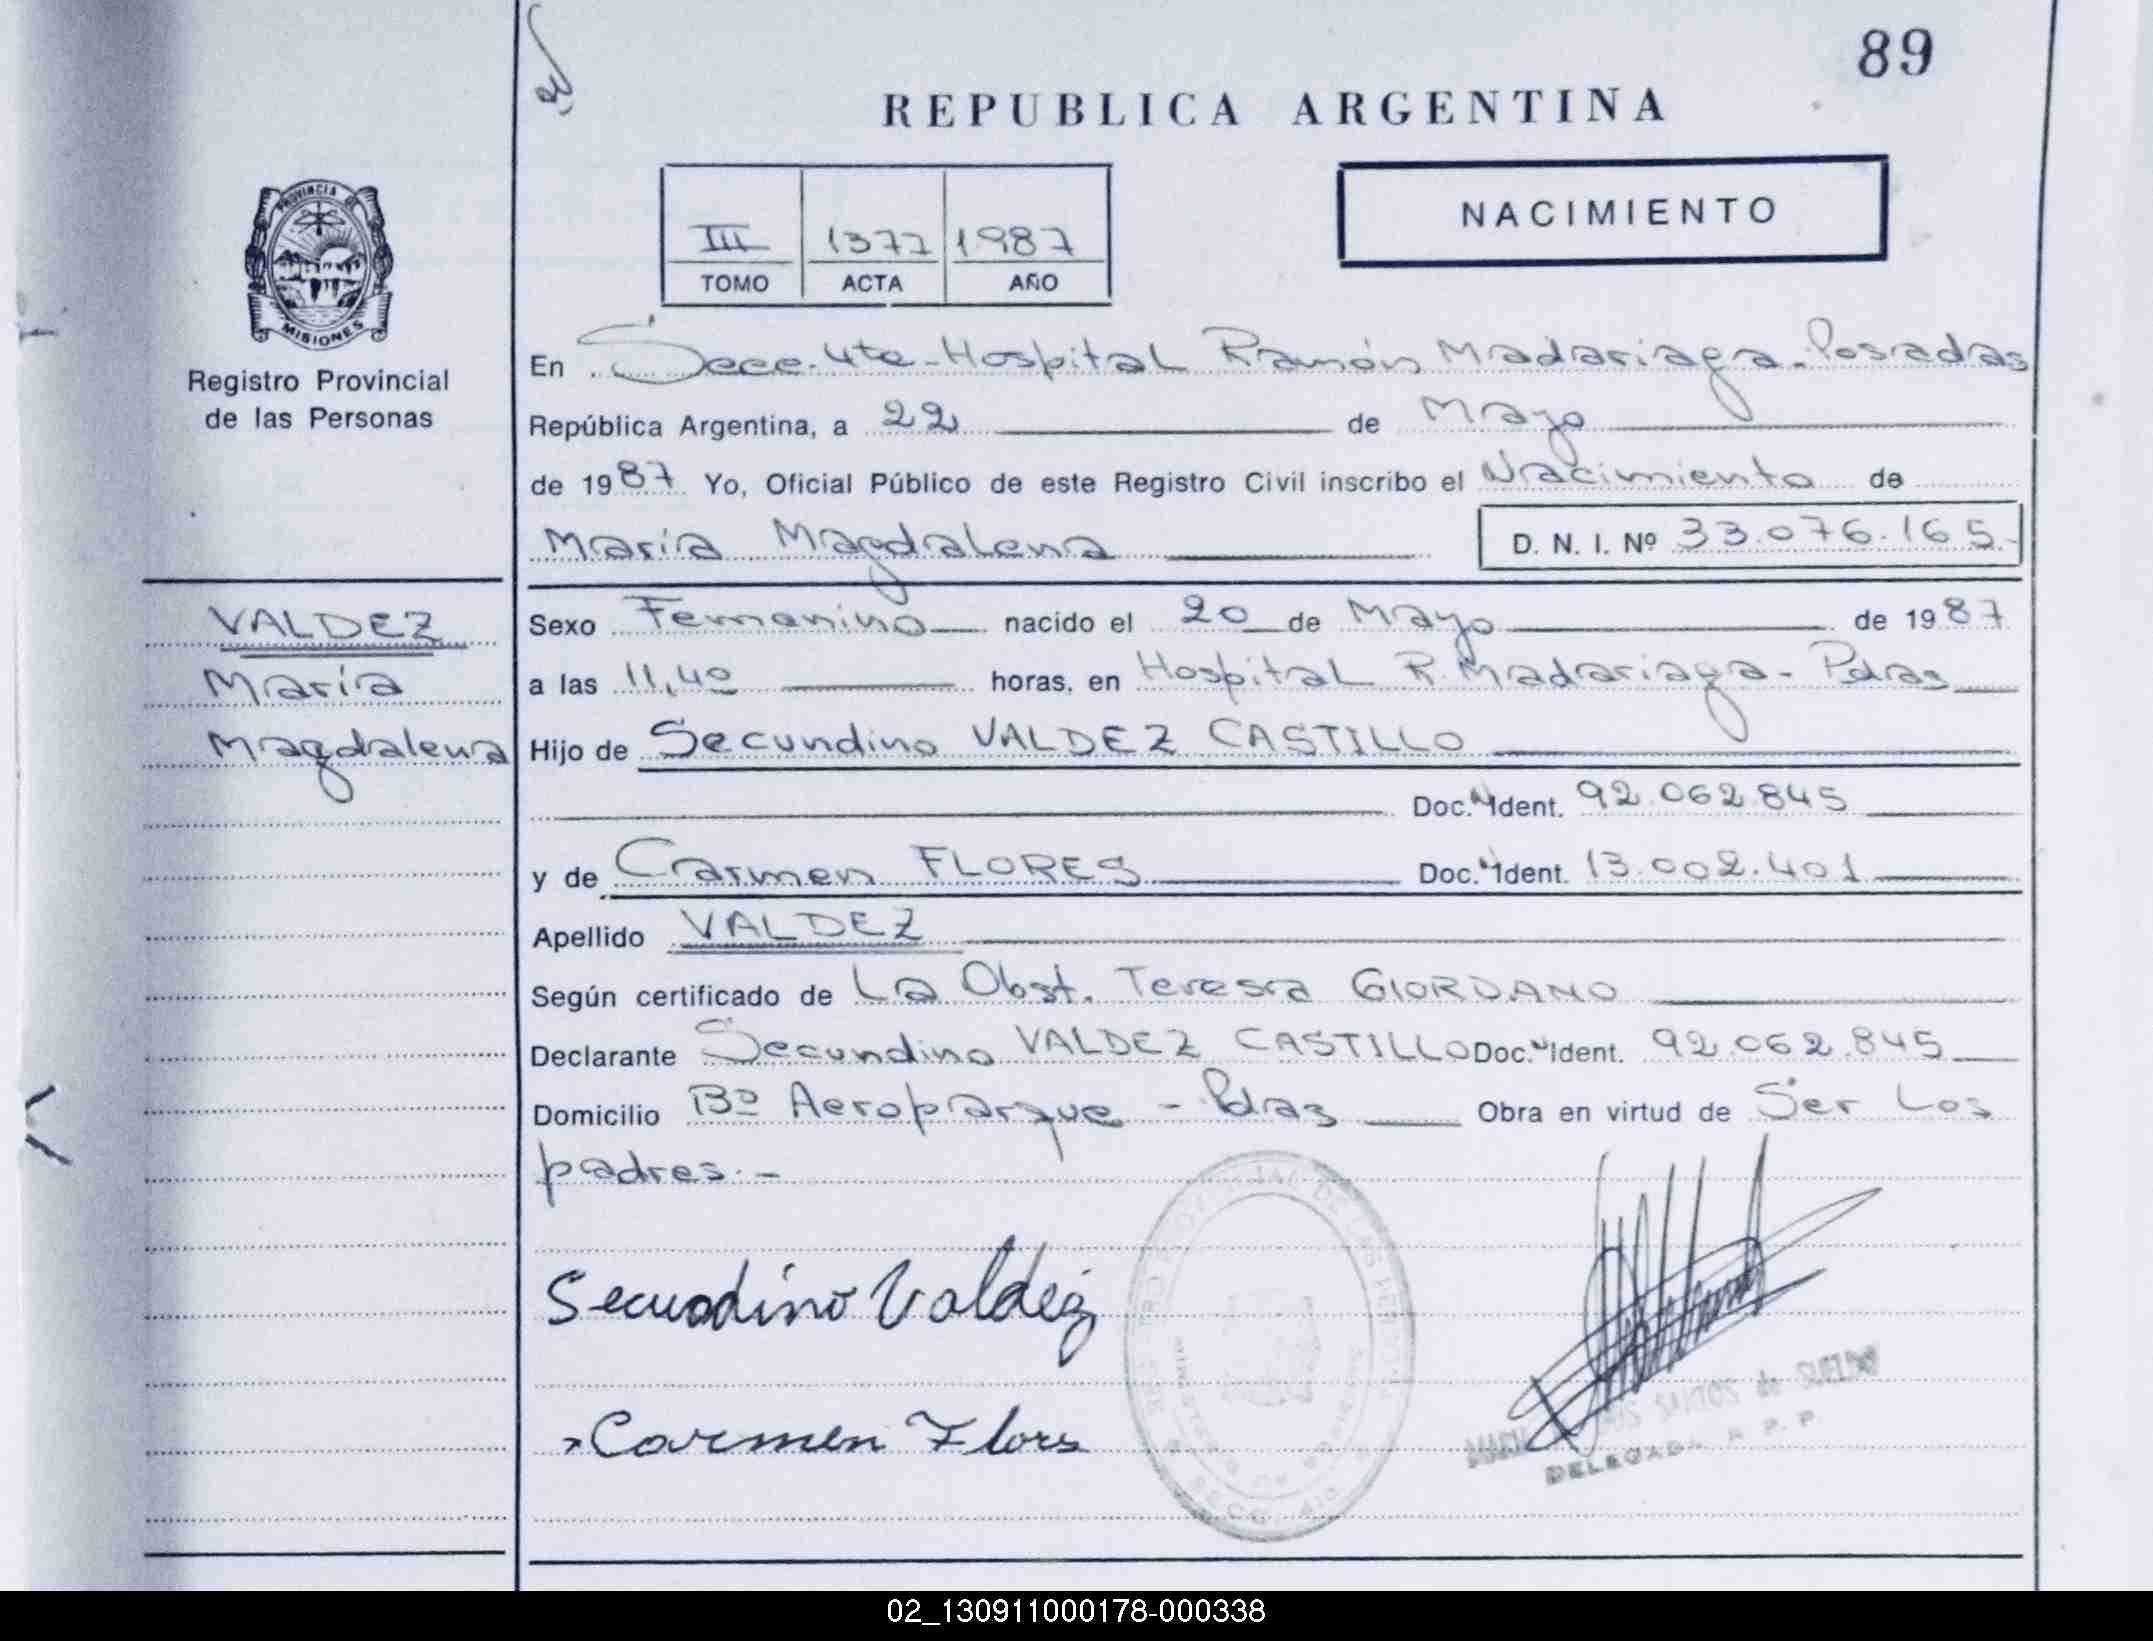 89
REPUBLICA ARGENTINA
PROVINCIA DE
MISIONES
Registro Provincial
de las Personas
III 1377 1987
TOMO ACTA AÑO
NACIMIENTO
En Secc. 4ta - Hospital Ramón Madariaga - Posadas
República Argentina, a 22 de Mayo
de 1987 Yo, Oficial Público de este Registro Civil inscribo el Nacimiento de
María Magdalena D. N. I. Nº 33.076.165.-
VALDEZ
María
Magdalena
Sexo Femenino nacido el 20 de Mayo de 1987
a las 11,40 horas, en Hospital R. Madariaga - Pdas
Hijo de Secundino VALDEZ CASTILLO
Doc. Ident. 92.062.845
y de Carmen FLORES Doc. Ident. 13.002.401
Apellido VALDEZ
Según certificado de La Obst. Teresa GIORDANO
Declarante Secundino VALDEZ CASTILLO Doc. Ident. 92.062.845
Domicilio Bº Aeroparque - Pdas Obra en virtud de Ser Los
padres.-
Secundino Valdez
Carmen Flors
SANTOS de
DELEGADA R. P. P.
02_130911000178-000338